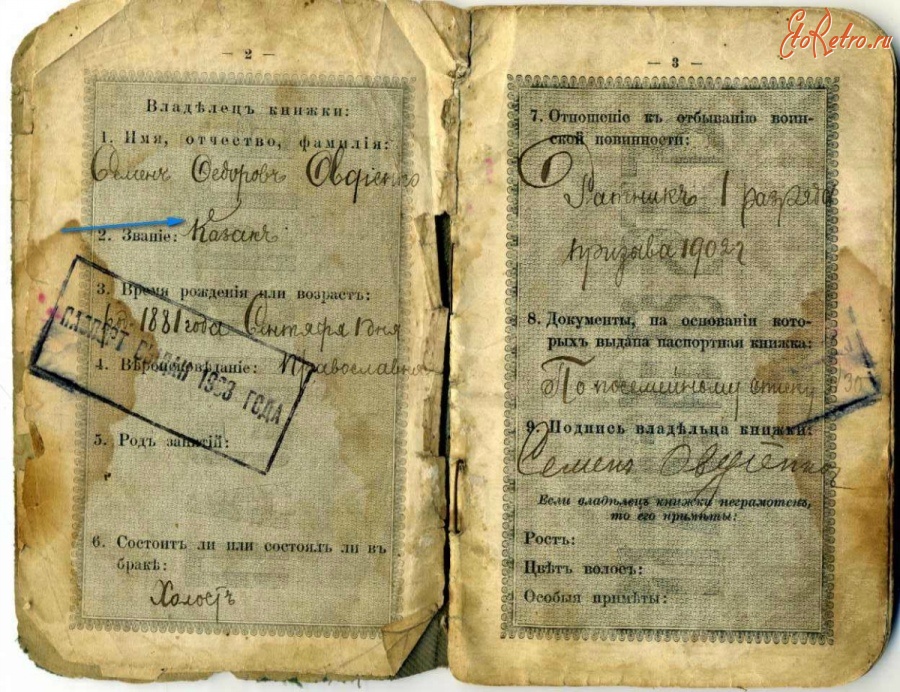 EtoRetro.ru
— 2 —
Владѣлецъ книжки:
1. Имя, отчество, фамилія:
Семенъ Федоровъ Овдіенко
2. Званіе: Казакъ
3. Время рожденія или возрастъ:
1881 года Сентября 1 дня
4. Вѣроисповѣданіе: Православное
5. Родъ занятій:
1933 ГОДА
6. Состоитъ ли или состоялъ ли въ
бракѣ:
Холостъ
— 3 —
7. Отношеніе къ отбыванію воин-
ской повинности:
Ратникъ 1 разряда
призыва 1902 г
8. Документы, на основаніи кото-
рыхъ выдана паспортная книжка:
По посемейному списку
9. Подпись владѣльца книжки:
Семенъ Овдіенко
Если владѣлецъ книжки неграмотенъ,
то его примѣты:
Ростъ:
Цвѣтъ волосъ:
Особыя примѣты: